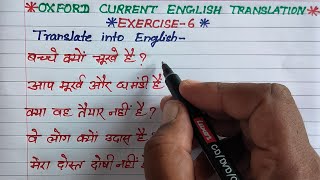 *OXFORD CURRENT ENGLISH TRANSLATION*
*EXERCISE-6*
Translate into English-
बच्चे क्यों भूखे है?
आप मूर्ख और घमंडी है
क्या वह तैयार नहीं है?
वे लोग क्यों उदास है
मेरा दोस्त दोषी नहीं है
CD/DVD/